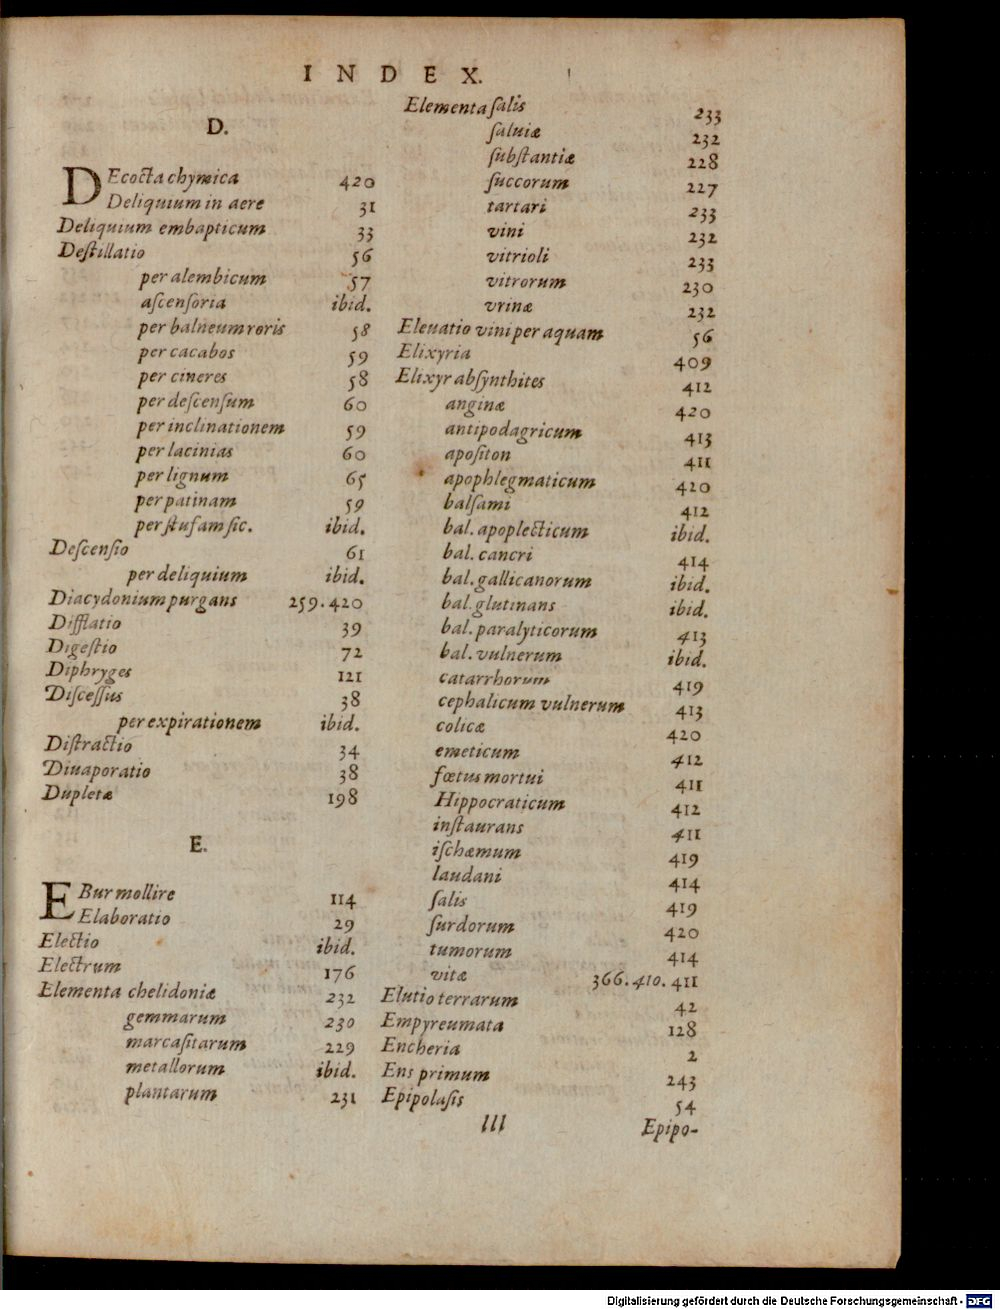 INDEX.
D.
DEcocta chymica 420
Deliquium in aere 31
Deliquium embapticum 33
Deſtillatio 56
per alembicum 57
aſcenſoria ibid.
per balneum roris 58
per cacabos 59
per cineres 58
per deſcenſum 60
per inclinationem 59
per lacinias 60
per lignum 65
per patinam 59
per ſtufam ſic. ibid.
Deſcenſio 61
per deliquium ibid.
Diacydonium purgans 259.420
Difflatio 39
Digeſtio 72
Diphryges 121
Diſceſſus 38
per expirationem ibid.
Diſtractio 34
Diuaporatio 38
Dupletæ 198
E.
EBur mollire 114
Elaboratio 29
Electio ibid.
Electrum 176
Elementa chelidoniæ 232
gemmarum 230
marcaſitarum 229
metallorum ibid.
plantarum 231
Elementa ſalis 233
ſaluiæ 232
ſubſtantiæ 228
ſuccorum 227
tartari 233
vini 232
vitrioli 233
vitrorum 230
vrinæ 232
Eleuatio vini per aquam 56
Elixyria 409
Elixyr abſynthites 412
anginæ 420
antipodagricum 413
apoſiton 411
apophlegmaticum 420
balſami 412
bal. apoplecticum ibid.
bal. cancri 414
bal. gallicanorum ibid.
bal. glutinans ibid.
bal. paralyticorum 413
bal. vulnerum ibid.
catarrhorum 419
cephalicum vulnerum 413
colicæ 420
emeticum 412
fœtus mortui 411
Hippocraticum 412
inſtaurans 411
iſchæmum 419
laudani 414
ſalis 419
ſurdorum 420
tumorum 414
vitæ 366.410.411
Elutio terrarum 42
Empyreumata 128
Encheria 2
Ens primum 243
Epipolaſis 54
lll Epipo-
Digitalisierung gefördert durch die Deutsche Forschungsgemeinschaft - DFG